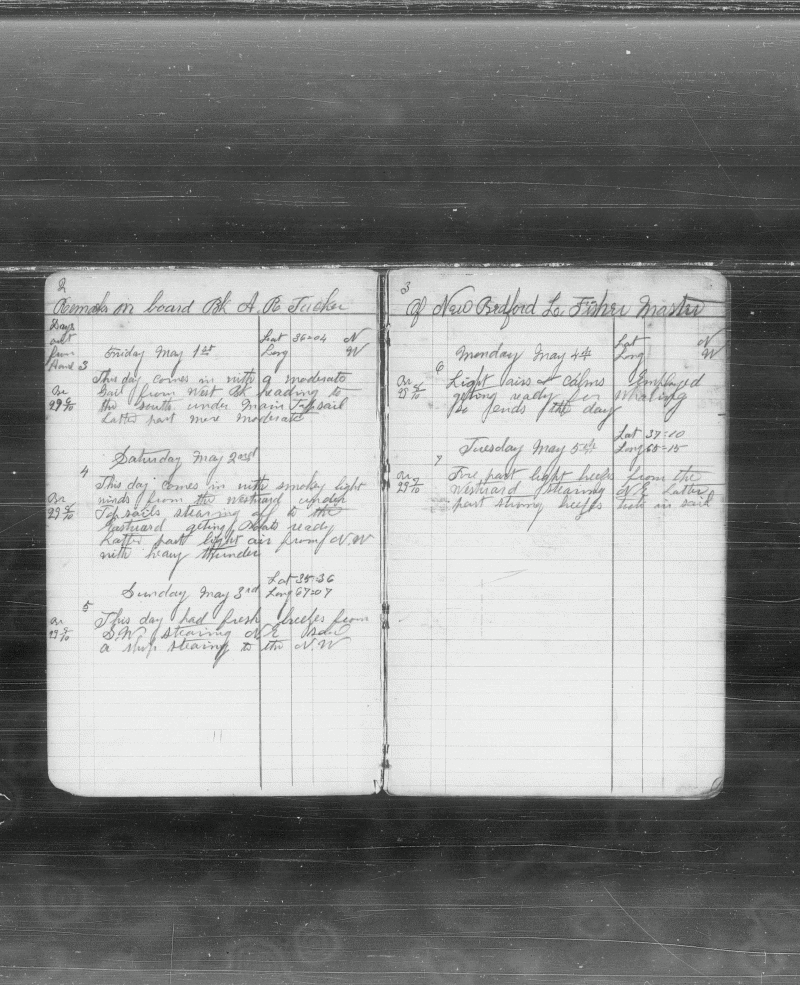 2
Remarks on board Bk A R Tucker
Days
out
from
Friday May 1st
Lat 36=04 N
Long W
3
This day comes in with a moderate
Gail from West Bk heading to
the south under Main Topsail
Latter part more moderate
Bar
29 6/10
Saturday May 2nd
4
This day comes in with smoky light
winds from the westward under
Topsails stearing off to the
Eastward geting Boats ready
Latter part light air from N.W
with heavy thunder
Bar
29 6/10
Sunday May 3rd
Lat 35=36
Long 67=07
5
This day had fresh breefes from
S.W. stearing N.E. saw
a ship stearing to the N.W
Bar
3
Of New Bedford L. Fisher Master
Monday May 4th
Lat N
Long W
6
Light airs & calms Employed
geting ready for whaling
so ends the day
Bar
Tuesday May 5th
Lat 37=10
Long 65=15
7
Fore part light breefes from the
westward stearing N.E. Latter
part strong breefes took in sail
Bar